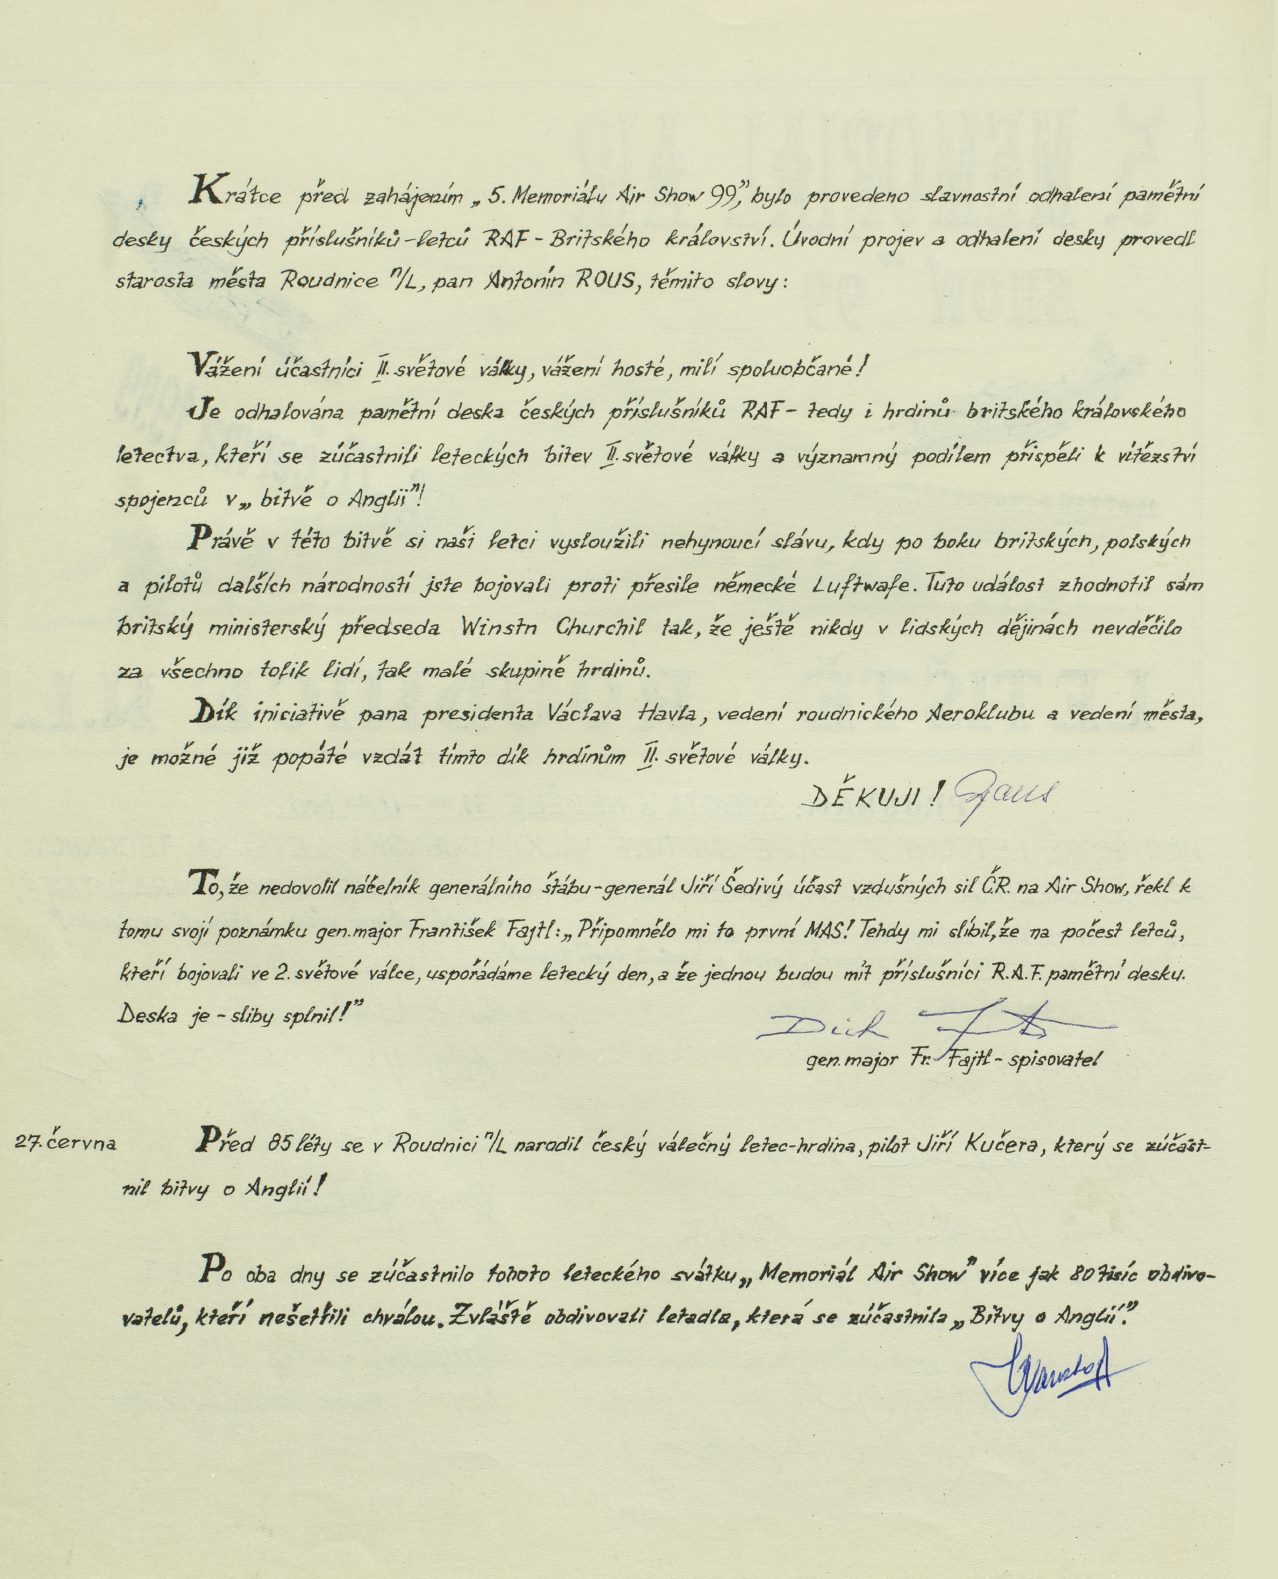 Krátce před zahájením „5. Memoriálu Air Show 99", bylo provedeno slavnostní odhalení pamětní
desky českých příslušníků-letců RAF - Britského království. Úvodní projev a odhalení desky provedl
starosta města Roudnice n/L, pan Antonín ROUS, těmito slovy:
Vážení účastníci II. světové války, vážení hosté, milí spoluobčané!
Je odhalována pamětní deska českých příslušníků RAF - tedy i hrdinů britského královského
letectva, kteří se zúčastnili leteckých bitev II. světové války a významný podílem přispěli k vítězství
spojenců v „bitvě o Anglii"!
Právě v této bitvě si naši letci vysloužili nehynoucí slávu, kdy po boku britských, polských
a pilotů dalších národností jste bojovali proti přesile německé Luftwafe. Tuto událost zhodnotil sám
britský ministerský předseda Winstn Churchil tak, že ještě nikdy v lidských dějinách nevděčilo
za všechno tolik lidí, tak malé skupině hrdinů.
Dík iniciativě pana presidenta Václava Havla, vedení roudnického Aeroklubu a vedení města,
je možné již popáté vzdát tímto dík hrdinům II. světové války.
DĚKUJI!
To, že nedovolil náčelník generálního štábu-generál Jiří Šedivý účast vzdušných sil ČR. na Air Show, řekl k
tomu svojí poznámku gen. major František Fajtl: „Připomnělo mi to první MAS! Tehdy mi slíbil, že na počest letců,
kteří bojovali ve 2. světové válce, uspořádáme letecký den, a že jednou budou mít příslušníci R.A.F. pamětní desku.
Deska je - sliby splnil!"
gen. major Fr. Fajtl - spisovatel
27. června Před 85 léty se v Roudnici n/L narodil český válečný letec-hrdina, pilot Jiří Kučera, který se zúčast-
nil bitvy o Anglii!
Po oba dny se zúčastnilo tohoto leteckého svátku „Memoriál Air Show" více jak 80 tisíc obdivo-
vatelů, kteří nešetřili chválou. Zvláště obdivovali letadla, která se zúčastnila „Bitvy o Anglii".